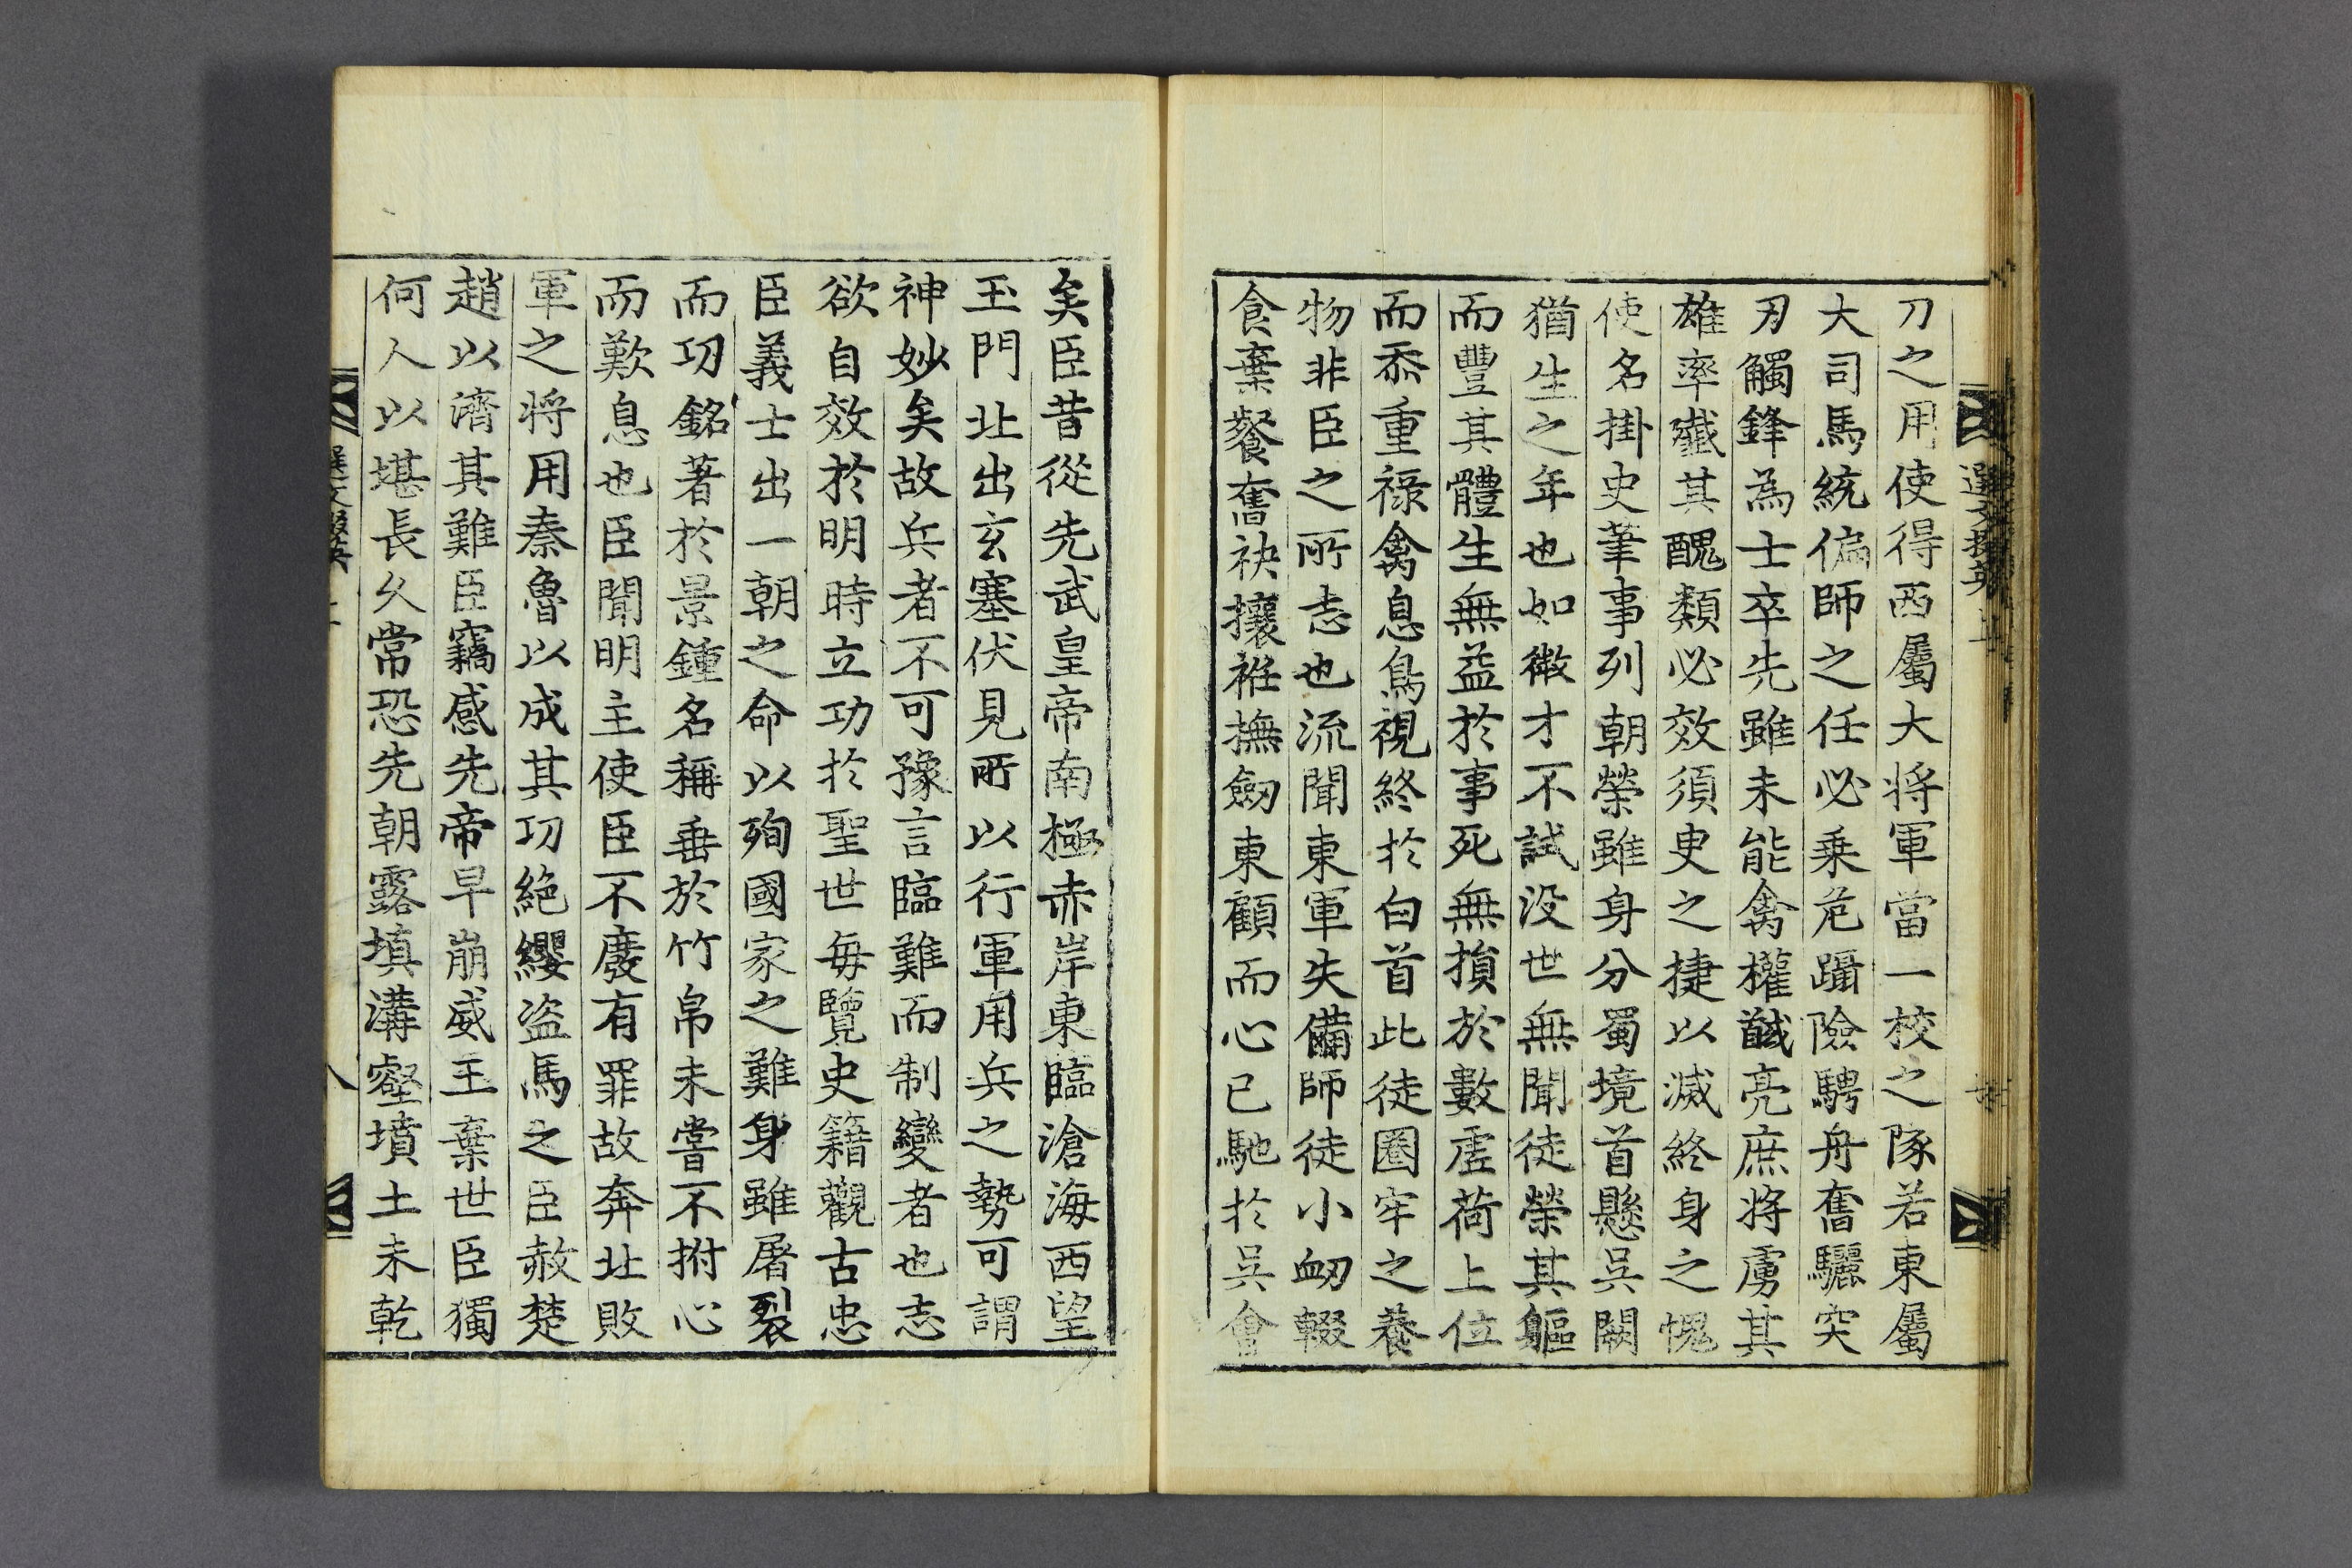 刀之用使得西屬大将軍當一校之隊若東屬
大司馬統偏師之任必乘危躡險騁舟奮驪突
刃觸鋒為士卒先雖未能禽權馘亮庶將虜其
雄率殲其醜類必效須臾之捷以滅終身之愧
使名掛史筆事列朝榮雖身分蜀境首懸吳闕
猶生之年也如微才不試没世無聞徒榮其軀
而豐其體生無益於事死無損於數虛荷上位
而忝重祿禽息鳥視終於白首此徒圈牢之養
物非臣之所志也流聞東軍失備師徒小衂輟
食棄餐奮袂攘袵撫劒東顧而心已馳於吳會
矣臣昔從先武皇帝南極赤岸東臨滄海西望
玉門北出玄塞伏見所以行軍用兵之勢可謂
神妙矣故兵者不可豫言臨難而制變者也志
欲自效於明時立功於聖世每覽史籍觀古忠
臣義士出一朝之命以殉國家之難身雖屠裂
而功銘著於景鍾名稱垂於竹帛未嘗不拊心
而歎息也臣聞明主使臣不廢有罪故奔北敗
軍之將用秦魯以成其功絕纓盜馬之臣赦楚
趙以濟其難臣竊感先帝早崩威王棄世臣獨
何人以堪長久常恐先朝露填溝壑墳土未乾